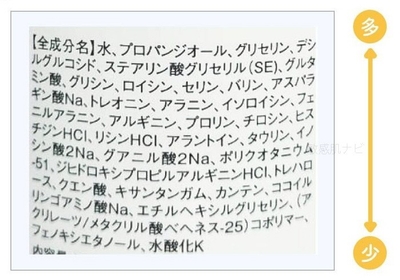 【全成分名】水、プロパンジオール、グリセリン、デシ
ルグルコシド、ステアリン酸グリセリル(SE)、グルタ
ミン酸、グリシン、ロイシン、セリン、バリン、アスパラ
ギン酸Na、トレオニン、アラニン、イソロイシン、フェ
ニルアラニン、アルギニン、プロリン、チロシン、ヒス
チジンHCl、リシンHCl、アラントイン、タウリン、イノ
シン酸2Na、グアニル酸2Na、ポリクオタニウム
-51、ジヒドロキシプロピルアルギニンHCl、トレハロ
ース、クエン酸、キサンタンガム、カンテン、ココイル
リンゴアミノ酸Na、エチルヘキシルグリセリン、(ア
クリレーツ/メタクリル酸ベヘネス-25)コポリマー、
フェノキシエタノール、水酸化K
多
少
肌ナビ